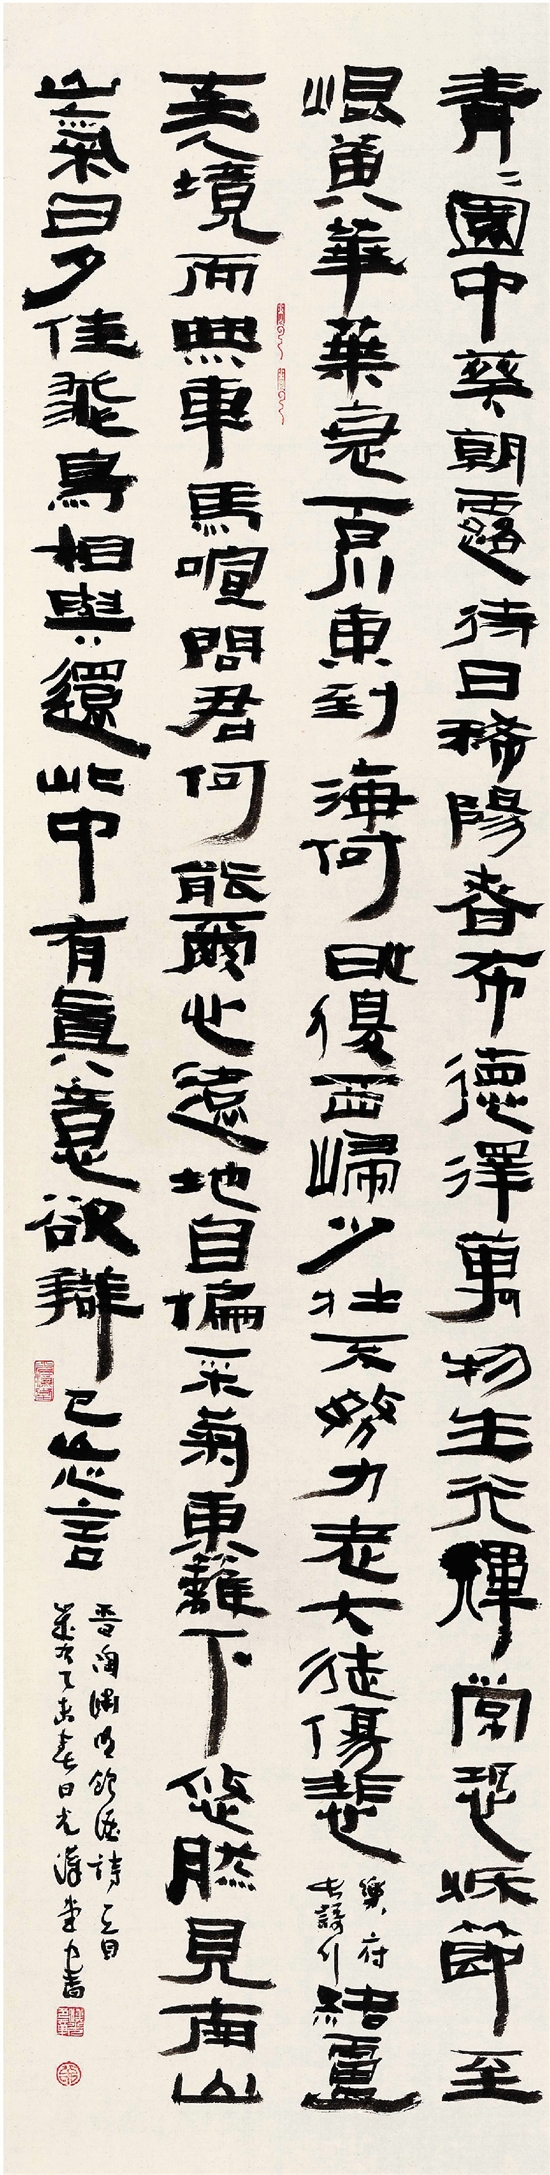 青〻園中葵朝露待日稀陽春布德澤萬物生光輝常恐秋節至
崐黃華葉衰百川東到海何時復西歸少壯不努力老大徒傷悲
樂府
長歌行
結廬
在人境而無車馬喧問君何能爾心遠地自偏采菊東籬下悠然見南山
山氣日夕佳飛鳥相與還此中有真意欲辯已忘言
晉陶淵明飲酒詩
歲次乙未春日光漢